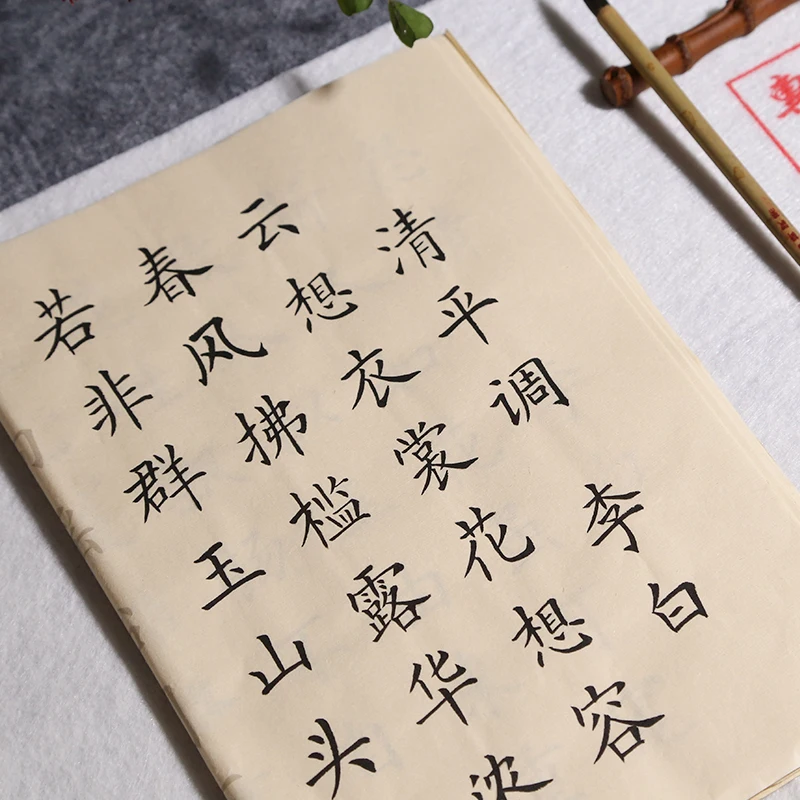 清平调 李白
云想衣裳花想容
春风拂槛露华浓
若非群玉山头